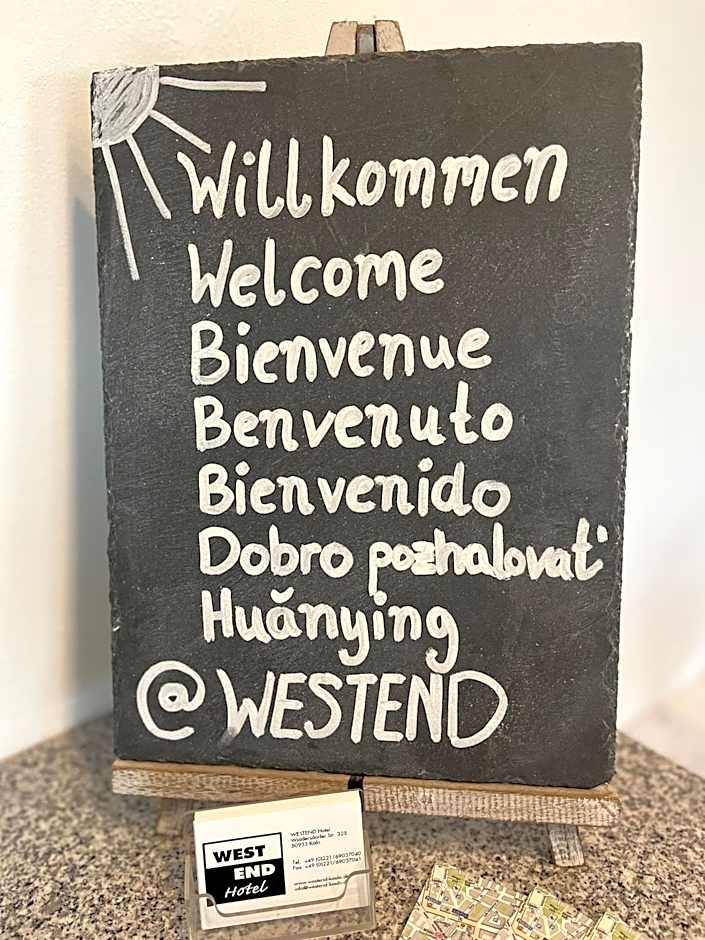 Willkommen
Welcome
Bienvenue
Benvenuto
Bienvenido
Dobro pozhalovat'
Huănying
@ WESTEND
WEST
END
Hotel
WESTEND Hotel
50933 Köln
Tel. +49 (0)221/69037040
Fax +49 (0)221/69037041